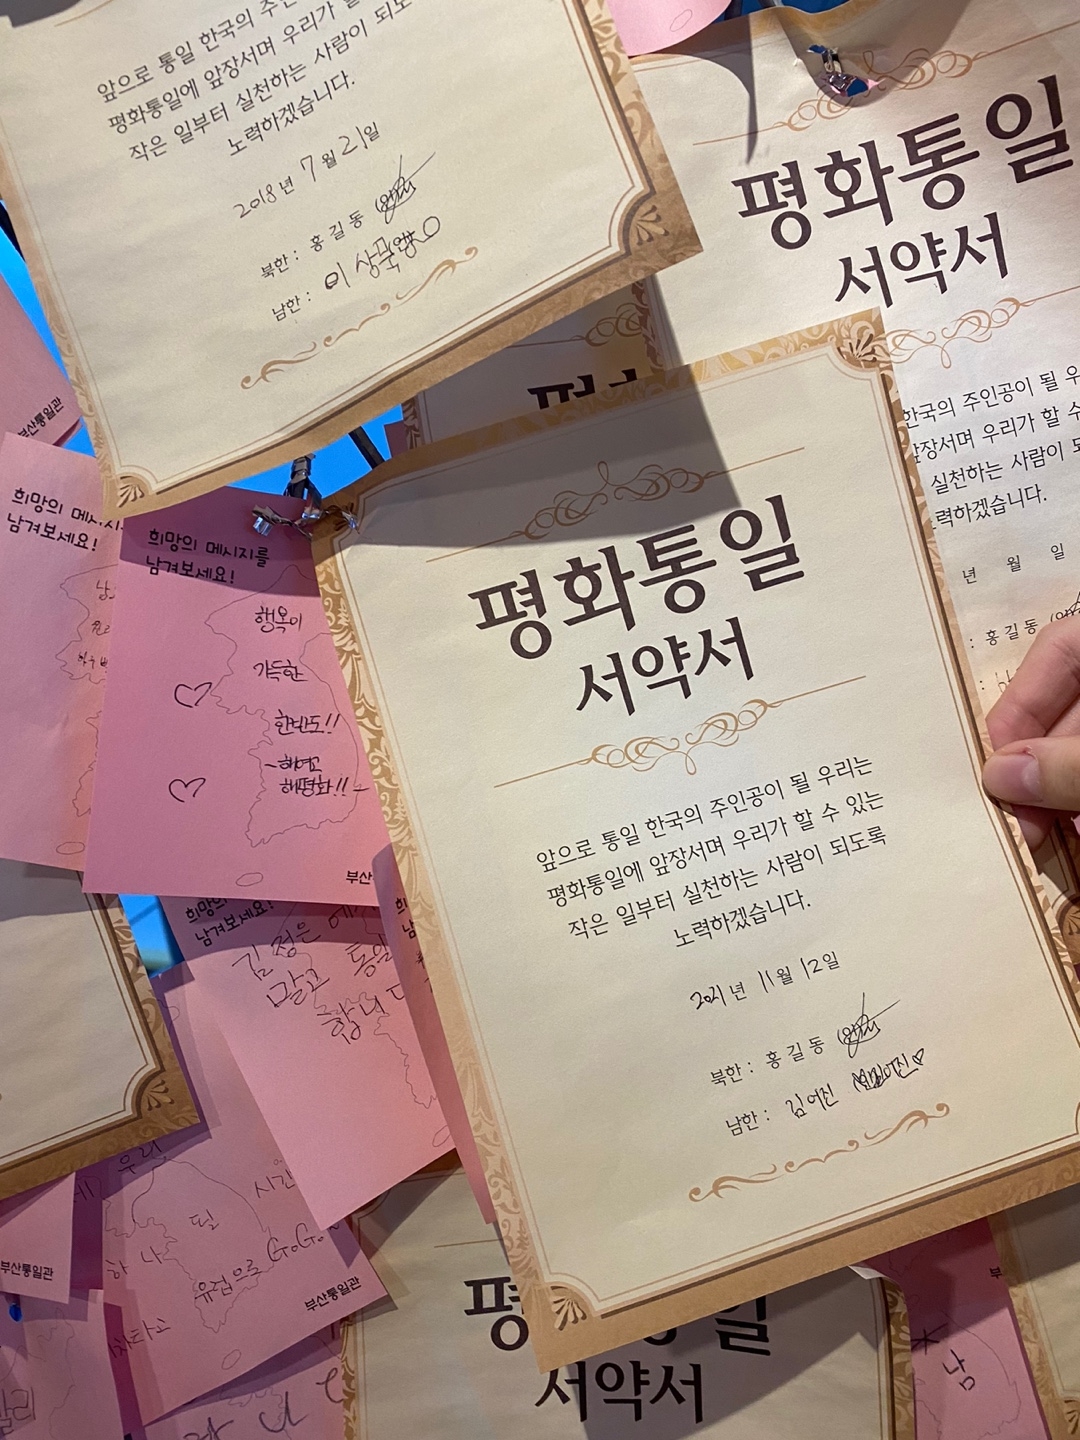 앞으로 통일 한국의 주인
평화통일에 앞장서며 우리가 할
작은 일부터 실천하는 사람이 되도
노력하겠습니다.
2018년 7월 21일
북한 : 홍길동
남한 :
평화통일
서약서
한국의 주인공이 될 우
앞장서며 우리가 할 수
실천하는 사람이 되
력하겠습니다.
년 월 일
: 홍길동
부산통일관
희망의 메시지
남겨보세요!
희망의 메시지를
남겨보세요!
행복이
가득한
한반도!!
해평화!!
부산
평화통일
서약서
앞으로 통일 한국의 주인공이 될 우리는
평화통일에 앞장서며 우리가 할 수 있는
작은 일부터 실천하는 사람이 되도록
노력하겠습니다.
2021년 11월 12일
북한 : 홍길동
남한 : 김여진
남겨보세요!
김정은
말고 통일
합니다
우리
시간
필
하나
유럽으로 GoGo
부산통일관
부산통일관
평 일
서약서
남